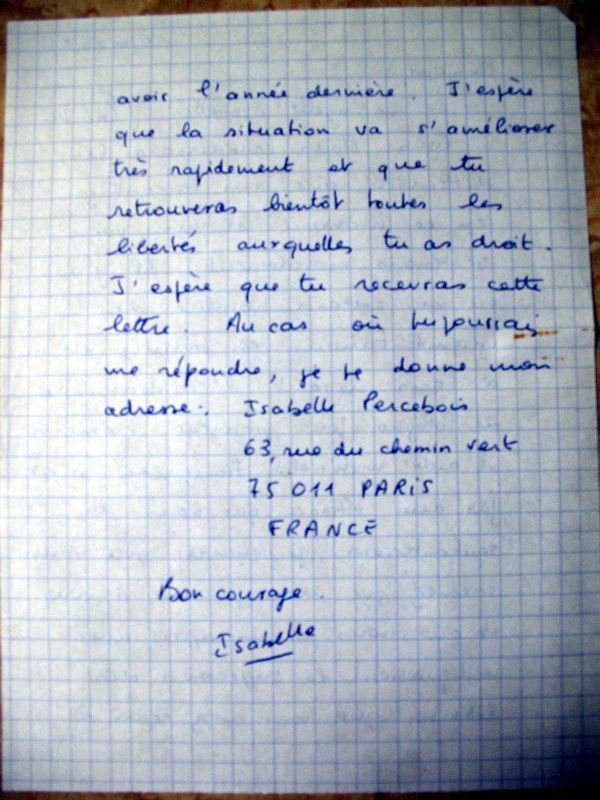 avoir l'année dernière. J'espère
que la situation va s'améliorer
très rapidement et que tu
retrouveras bientôt toutes les
libertés auxquelles tu as droit.
J'espère que tu recevras cette
lettre. Au cas où tu pourrais
me répondre, je te donne mon
adresse : Isabelle Percebois
63, rue du chemin vert
75 011 PARIS
FRANCE
Bon courage.
Isabelle